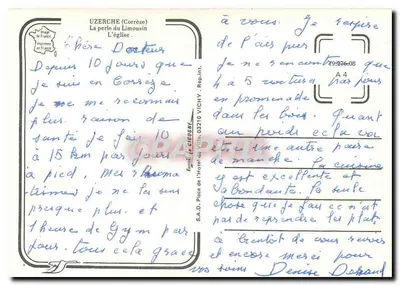 UZERCHE (Corrèze)
La perle du Limousin
L'église.
Chère Docteur
Depuis 10 jours que
je suis en Corrèze
je me me reconnais
plus raison de
santé je fais 10
à 15 km par jour
à pied. Mes rhuma
tismes je ne les sens
presque plus. et
1 heure de Gym par
jour. tous cela grace
S.A.D. Place de l'Hôtel de Ville, 03210 VICHY - Rep. int.
à vous. Je respire
de l'air pur
je ne rencontre que
4 à 5 voitures par jour
en promenade
dans les bois. Quant
au poids cela va
être une autre paire
de manche. La cuisine
y est excellente et
abondante. la seule
chose que je fais ce n'est
pas de reprendre les plat
à bientôt de vous revoir
et encore merci pour
vos soins Denise
A 4